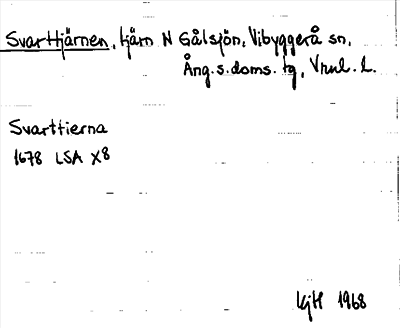 Svarttjärnen, tjärn N Gålsjön, Vibyggerå sn,
Ång. s. doms. tg, Vnnl. L.
Svarttierna
1678 LSA X8
KjH 1968